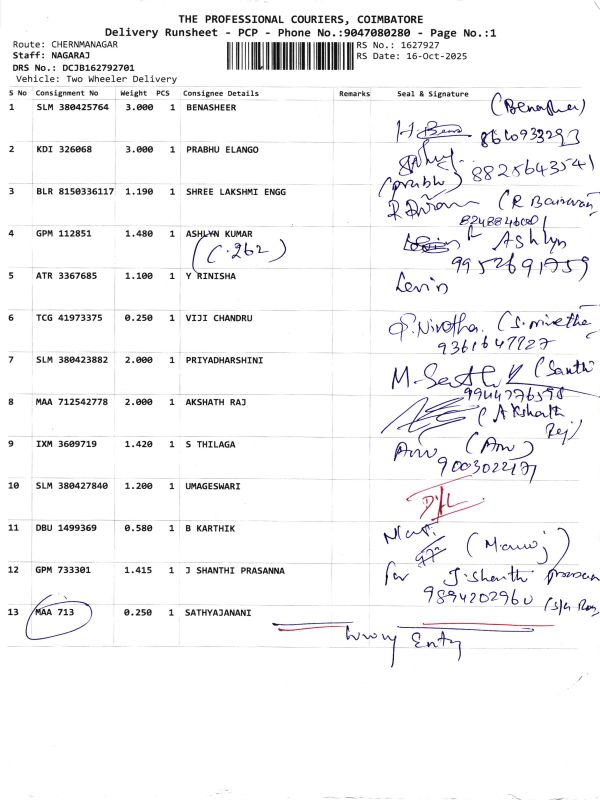 THE PROFESSIONAL COURIERS, COIMBATORE
Delivery Runsheet - PCP - Phone No.:9047080280 - Page No.:1
Route: CHERNMANAGAR RS No.: 1627927
Staff: NAGARAJ RS Date: 16-Oct-2025
DRS No.: DCJB162792701
Vehicle: Two Wheeler Delivery
S No Consignment No Weight PCS Consignee Details Remarks Seal & Signature
1 SLM 380425764 3.000 1 BENASHEER (Benasheer)
2 KDI 326068 3.000 1 PRABHU ELANGO
8825643541
(prabhu)
3 BLR 8150336117 1.190 1 SHREE LAKSHMI ENGG
4 GPM 112851 1.480 1 ASHLYN KUMAR Ashlyn
(C.262) 9952691759
5 ATR 3367685 1.100 1 Y RINISHA Levin
6 TCG 41973375 0.250 1 VIJI CHANDRU P.Nivetha. (S.nivetha
9361647727
7 SLM 380423882 2.000 1 PRIYADHARSHINI (Santhi
9944776598
8 MAA 712542778 2.000 1 AKSHATH RAJ (Akshath
Raj)
9 IXM 3609719 1.420 1 S THILAGA
9003022171
10 SLM 380427840 1.200 1 UMAGESWARI D/L
11 DBU 1499369 0.580 1 B KARTHIK (Manoj)
12 GPM 733301 1.415 1 J SHANTHI PRASANNA for J.Shanthi prasanna
9894202960
13 MAA 713 0.250 1 SATHYAJANANI
Wrong Entry